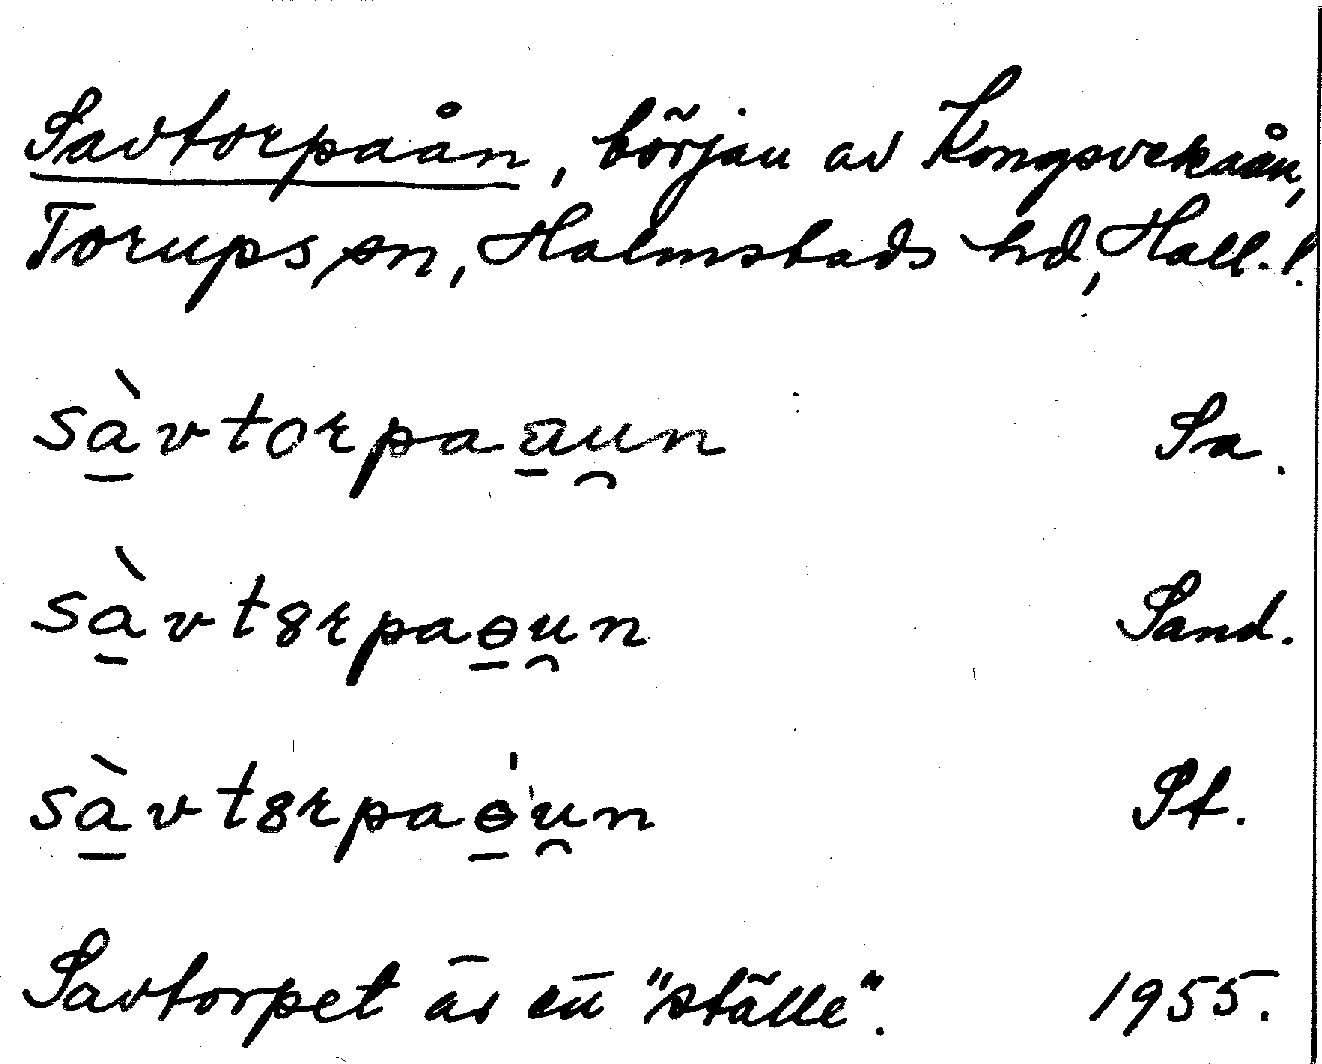 Savtorpaån, början av Kongsvekaån,
Torups sn, Halmstads hd, Hall.!
sàvtorpaau̯n Sa.
sàvt8rpaɵu̯n Sand.
sàvt8rpaɵ́u̯n St.
Savtorpet är ett "ställe". 1955.